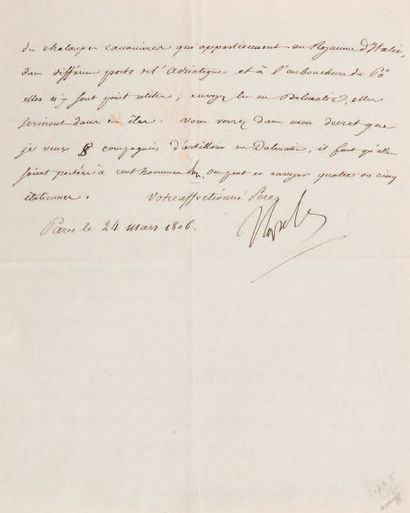 des chaloupes canonieres qui appartiennent au Royaume d'Italie,
dans différens ports de l'Adriatique et à l'embouchure du Pô
elles n'y sont point utiles; envoyez les en Dalmatie, elles
serviront dans ces îles. Vous verrez dans mon decret que
je veux 8 compagnies d'artillerie en Dalmatie; il faut qu'elles
soient portées à cent hommes on peut en envoyer quatre ou cinq
italiennes. Votre affectionné Pere
Paris le 24 mars 1806.
Napole